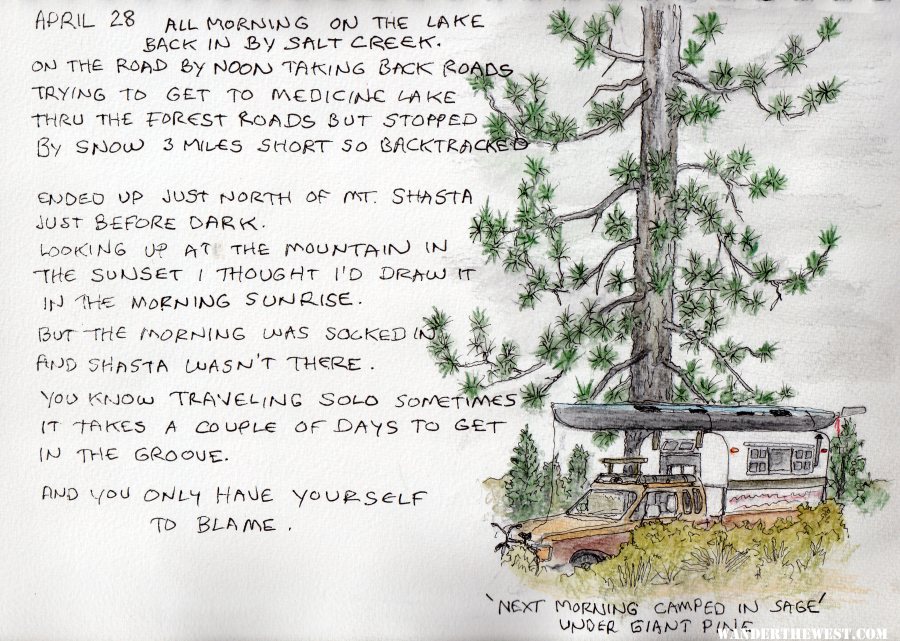 APRIL 28 ALL MORNING ON THE LAKE
BACK IN BY SALT CREEK.
ON THE ROAD BY NOON TAKING BACK ROADS
TRYING TO GET TO MEDICINE LAKE
THRU THE FOREST ROADS BUT STOPPED
BY SNOW 3 MILES SHORT SO BACKTRACKED
ENDED UP JUST NORTH OF MT. SHASTA
JUST BEFORE DARK.
LOOKING UP AT THE MOUNTAIN IN
THE SUNSET I THOUGHT I'D DRAW IT
IN THE MORNING SUNRISE.
BUT THE MORNING WAS SOCKED IN
AND SHASTA WASN'T THERE.
YOU KNOW TRAVELING SOLO SOMETIMES
IT TAKES A COUPLE OF DAYS TO GET
IN THE GROOVE.
AND YOU ONLY HAVE YOURSELF
TO BLAME.
'NEXT MORNING CAMPED IN SAGE'
UNDER GIANT PINE
WANDERTHEWEST.COM